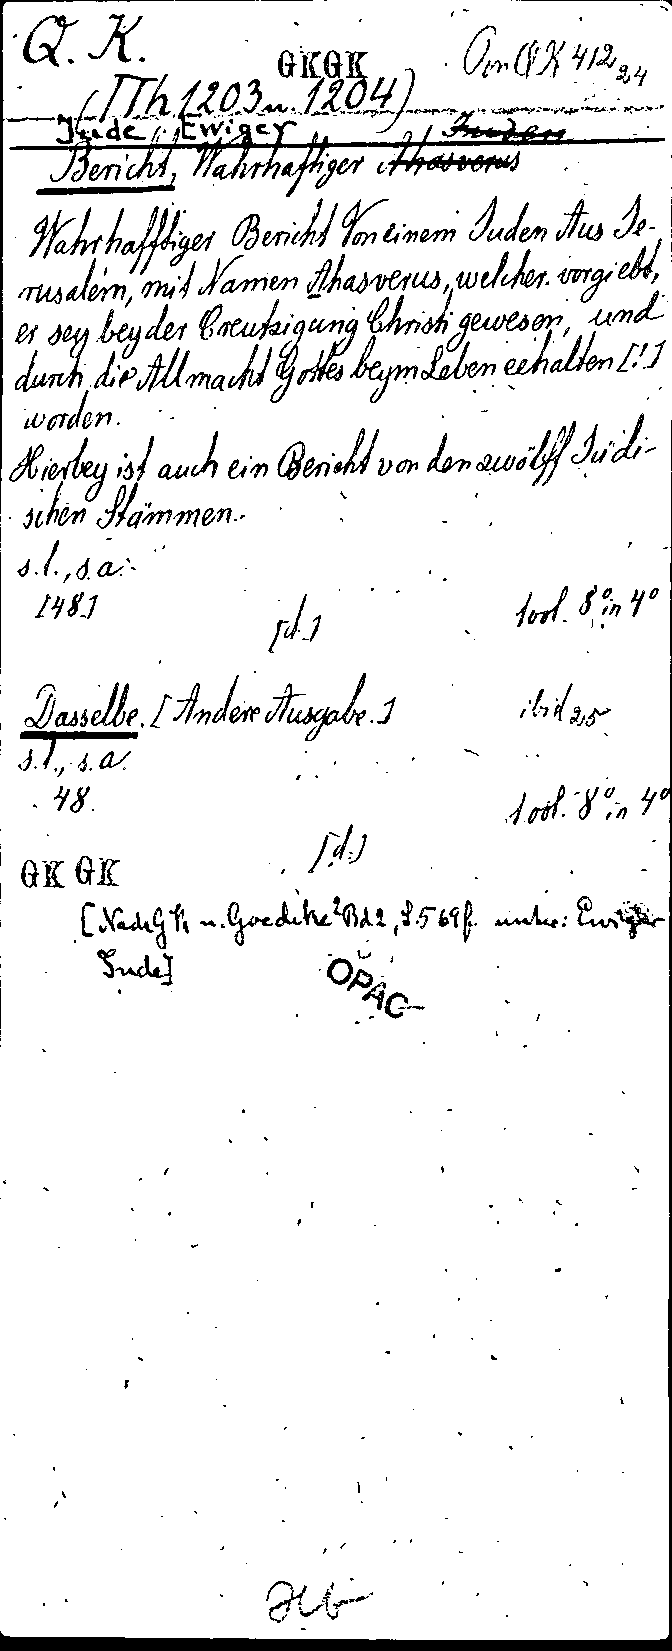 Q. K.
GKGK
Pon QK 412, 24
(ITh 1203 u. 1204)
Jude, Ewiger Juden
Bericht, Wahrhaftiger Ahasverus
Wahrhafftiger Bericht Von einem Juden Aus Je-
rusalem, mit Namen Ahasverus, welcher vorgiebt,
er sey bey der Creutzigung Christi gewesen, und
durch die Allmacht Gottes beym Leben eehalten [!]
worden.
Hierbey ist auch ein Bericht von den zwölff Jüdi-
schen Stämmen.
s.l., s.a.
[48.]
[d.]
8° in 4°
Dasselbe. [Andere Ausgabe.]
ibid 25
s.l., s.a.
48.
8° in 4°
[d.]
GK GK
[Nach GK u. Goedeke² Bd 2, S. 569f. unter: Ewiger
Jude]
OPAC